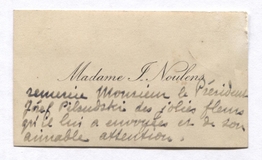 Madame J. Noulens
remercie Monsieur le Président
Josef Pilsudski des jolies fleurs
qu'il lui a envoyées et de son
aimable attention.